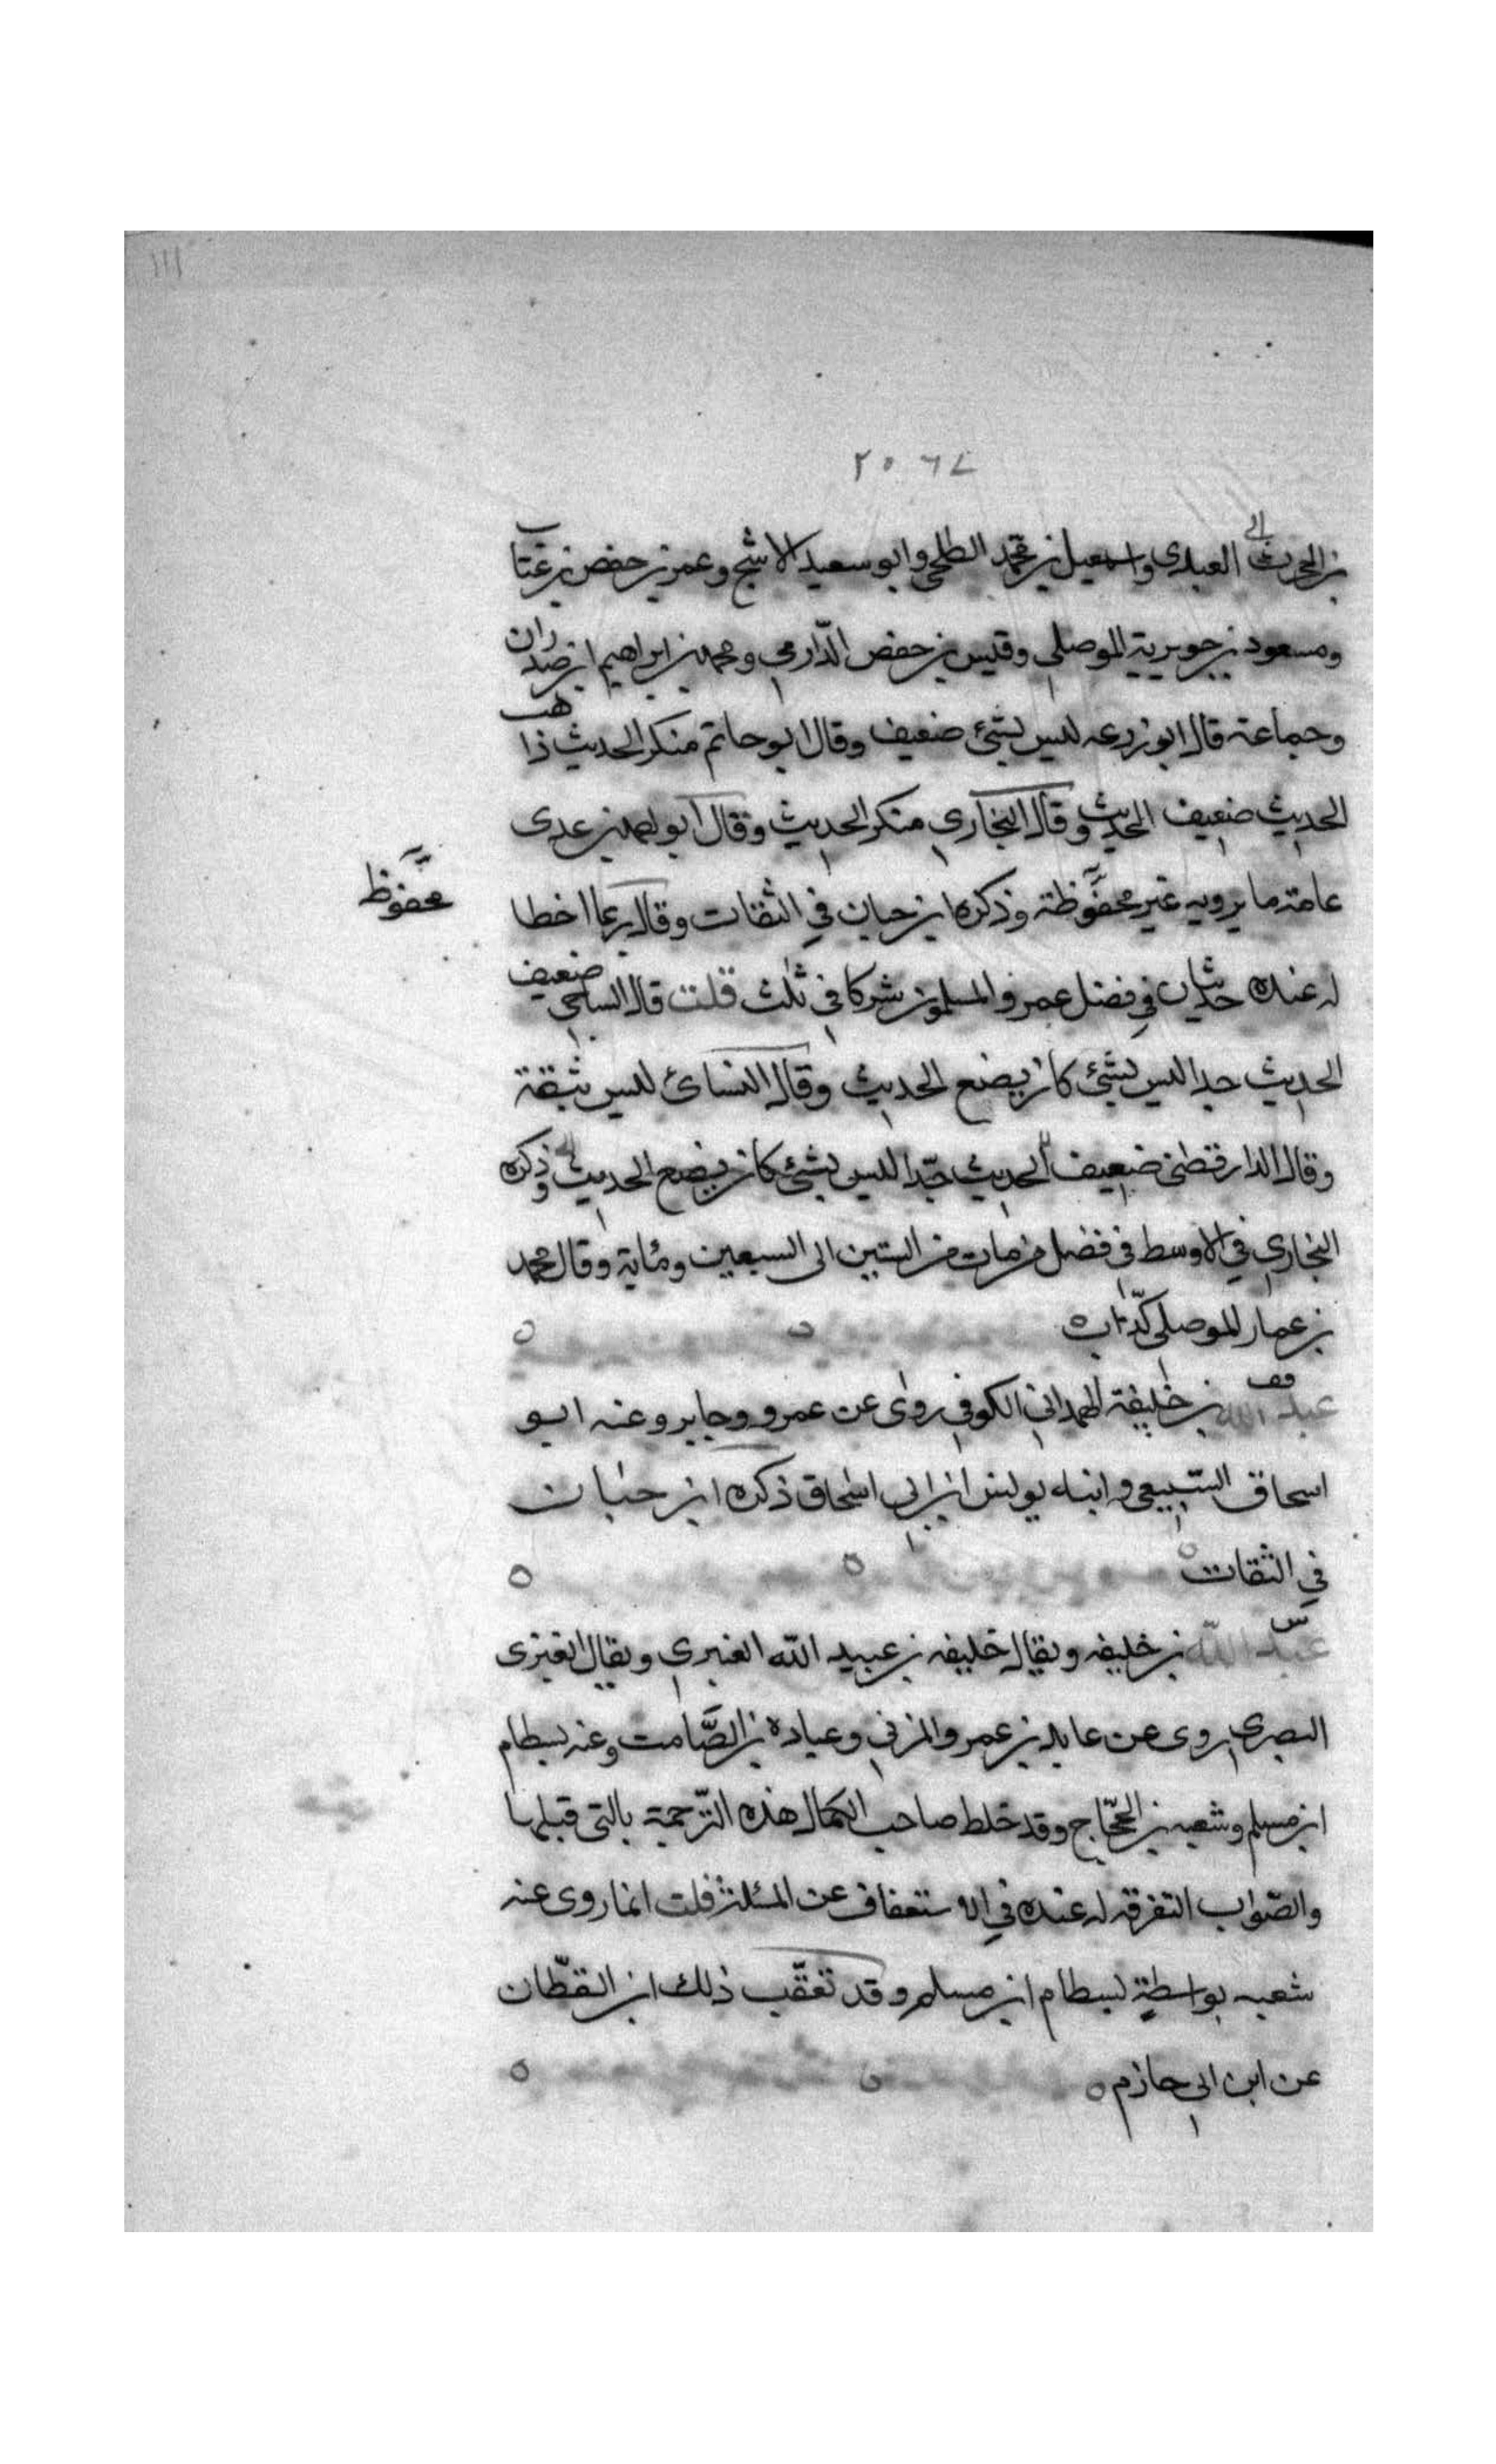 ١١١
٢٥٦٧
بن الحرث الى العبدى واسمعيل بن محمد الطلحى وابو سعيد الاشج وعمر بن حفص بن غتاب
ومسعود بن جويرية الموصلى وقيس بن حفص الدّارمى ومحمد بن ابراهيم ابن صدران
وجماعة قال ابو زرعه ليس بشئ ضعيف وقال ابو حاتم منكر الحديث ذاهب
الحديث ضعيف الحديث وقال البخارى منكر الحديث وقال ابو احمد بن عدى
عامة ما يرويه غير محفوظة وذكره ابن حبان في الثقات وقال ربما اخطا
محفوظ
له عنده حديثان في فضل عمر والمسلمون شركا في ثلث قلت قال الساجى ضعيف
الحديث جدا ليس بشئ كان يضع الحديث وقال النسائ ليس بثقة
وقال الدارقطنى ضعيف الحديث جدّا ليس بشئ كان يضع الحديث وذكره
البخارى في الاوسط في فضل من مات من الستين الى السبعين ومائة وقال محمد
بن عمار الموصلى كذّاب
عبد الله بن خليفة الهمدانى الكوفى روى عن عمرو وجابر وعنه ابو
اسحاق السبيعى وابنه يونس ابن ابى اسحاق ذكره ابن حبان
في الثقات
عبد الله بن خليفه ويقال خليفه بن عبيد الله العنبرى ويقال الغبرى
البصرى روى عن عايد بن عمرو المزنى وعبادة بن الصَّامت وعنه بسطام
ابن مسلم وشعبه بن الحجّاج وقد خلط صاحب الكمال هذه الترجمة بالتى قبلها
والصّواب التفرقه له عنده في الاستعفاف عن المسئلة قلت انما روى عنه
شعبه بواسطة بسطام ابن مسلم وقد تعقّب ذلك ابن القطّان
عن ابن ابى حازم